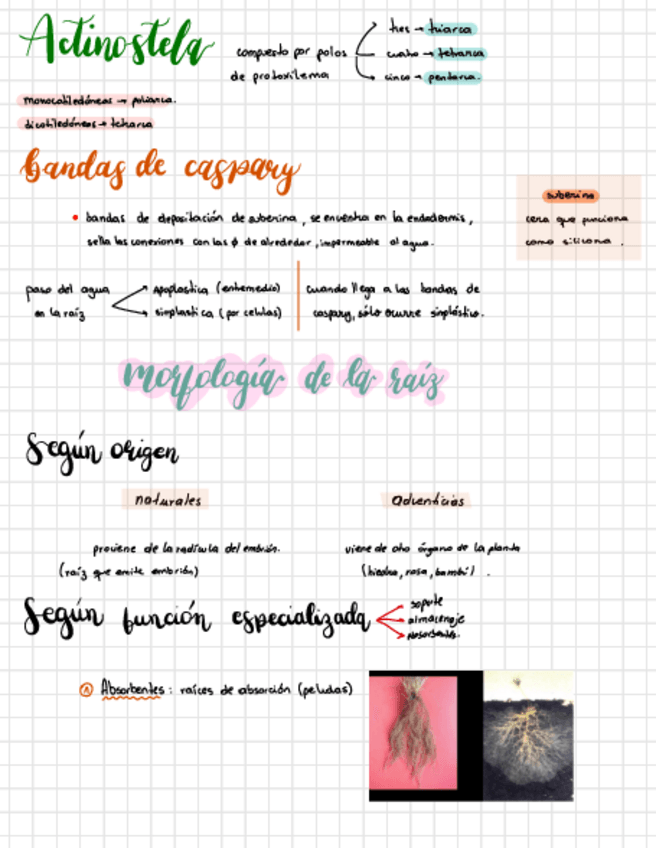 Actinostela
compuesto por polos
de protoxilema
tres → triarca
cuatro → tetrarca
cinco → pentarca.
monocotiledóneas → poliarca.
dicotiledóneas → tetrarca
bandas de caspary
• bandas de depositación de suberina, se encuentra en la endodermis,
sella las conexiones con las ϕ de alrededor, impermeable al agua.
suberina
cera que funciona
como silicona.
paso del agua
en la raíz
→ Apoplastica (entremedio)
→ simplastica (por celulas)
cuando llega a las bandas de
caspary, sólo ocurre simplástico.
morfología de la raíz
Según origen
naturales
proviene de la radícula del embrión.
(raíz que emite embrión)
adventicias
viene de otro órgano de la planta
(hiedra, rosa, bambú).
Según función especializada
soporte
almacenaje
absorbentes.
① Absorbentes: raíces de absorción (peludas)